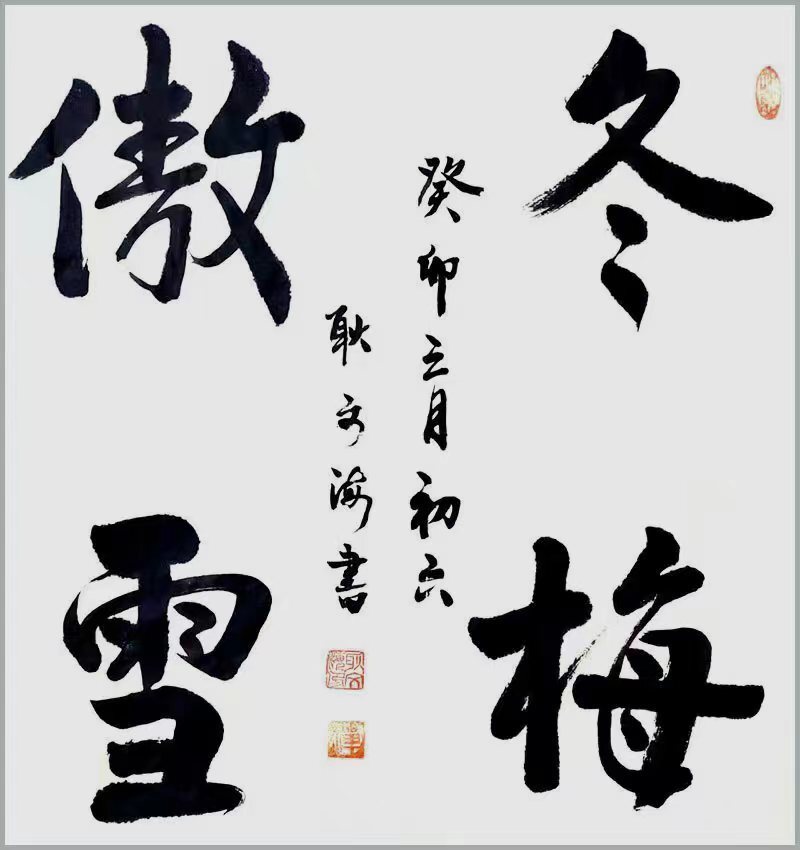 冬梅
傲雪
癸卯三月初六
耿文海書